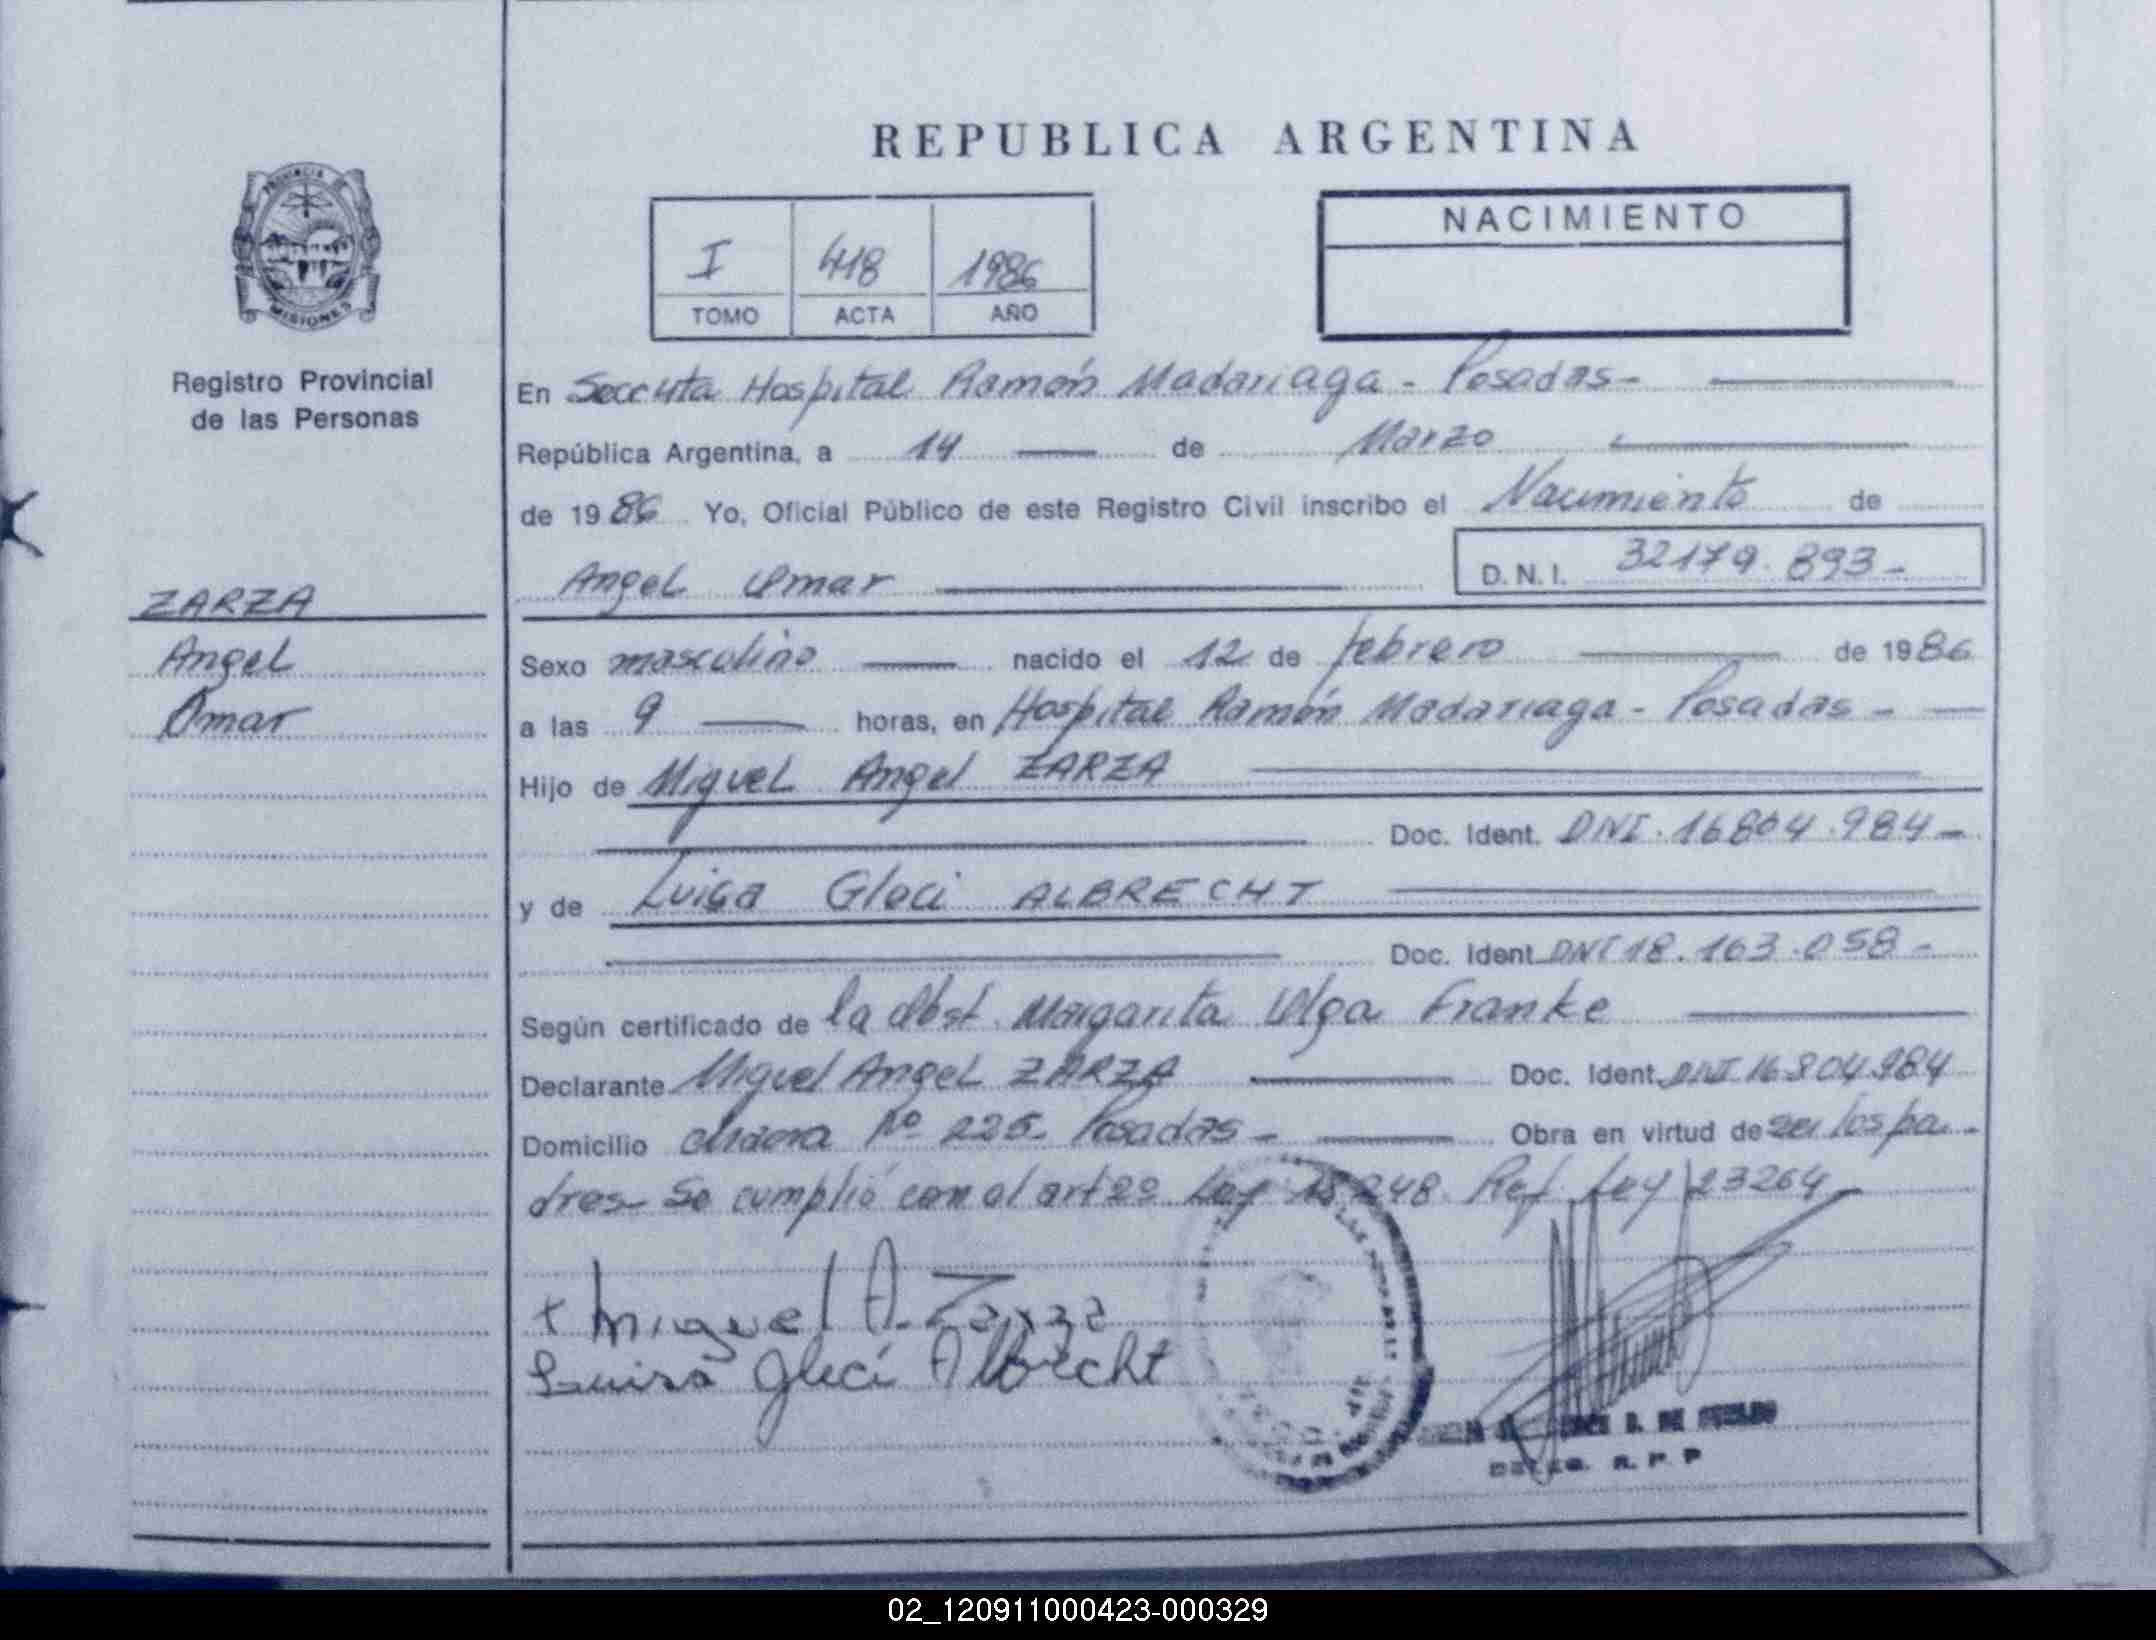 REPUBLICA ARGENTINA
PROVINCIA DE
MISIONES
Registro Provincial
de las Personas
I 418 1986
TOMO ACTA AÑO
NACIMIENTO
En Hospital Ramón Madariaga - Posadas -
República Argentina, a 14 de Marzo
de 1986 Yo, Oficial Público de este Registro Civil inscribo el Nacimiento de
Angel Omar D.N.I. 32179.893-
ZARZA
Angel
Omar
Sexo masculino nacido el 12 de febrero de 1986
a las 9 horas, en Hospital Ramón Madariaga - Posadas -
Hijo de Miguel Angel ZARZA
Doc. Ident. DNI. 16804.984-
y de Luisa Gleci ALBRECHT
Doc. Ident. DNI 18.163.058-
Según certificado de la Obst. Margarita Olga Franke
Declarante Miguel Angel ZARZA Doc. Ident. DNI 16.804.984
Domicilio chacra Nº 225- Posadas - Obra en virtud de ser los pa-
dres- Se cumplió con el art 2º Ley 18248. Ref. Ley 23264
+ Miguel A. Zarza
Luisa Gleci Albrecht
R. P. P
02_120911000423-000329